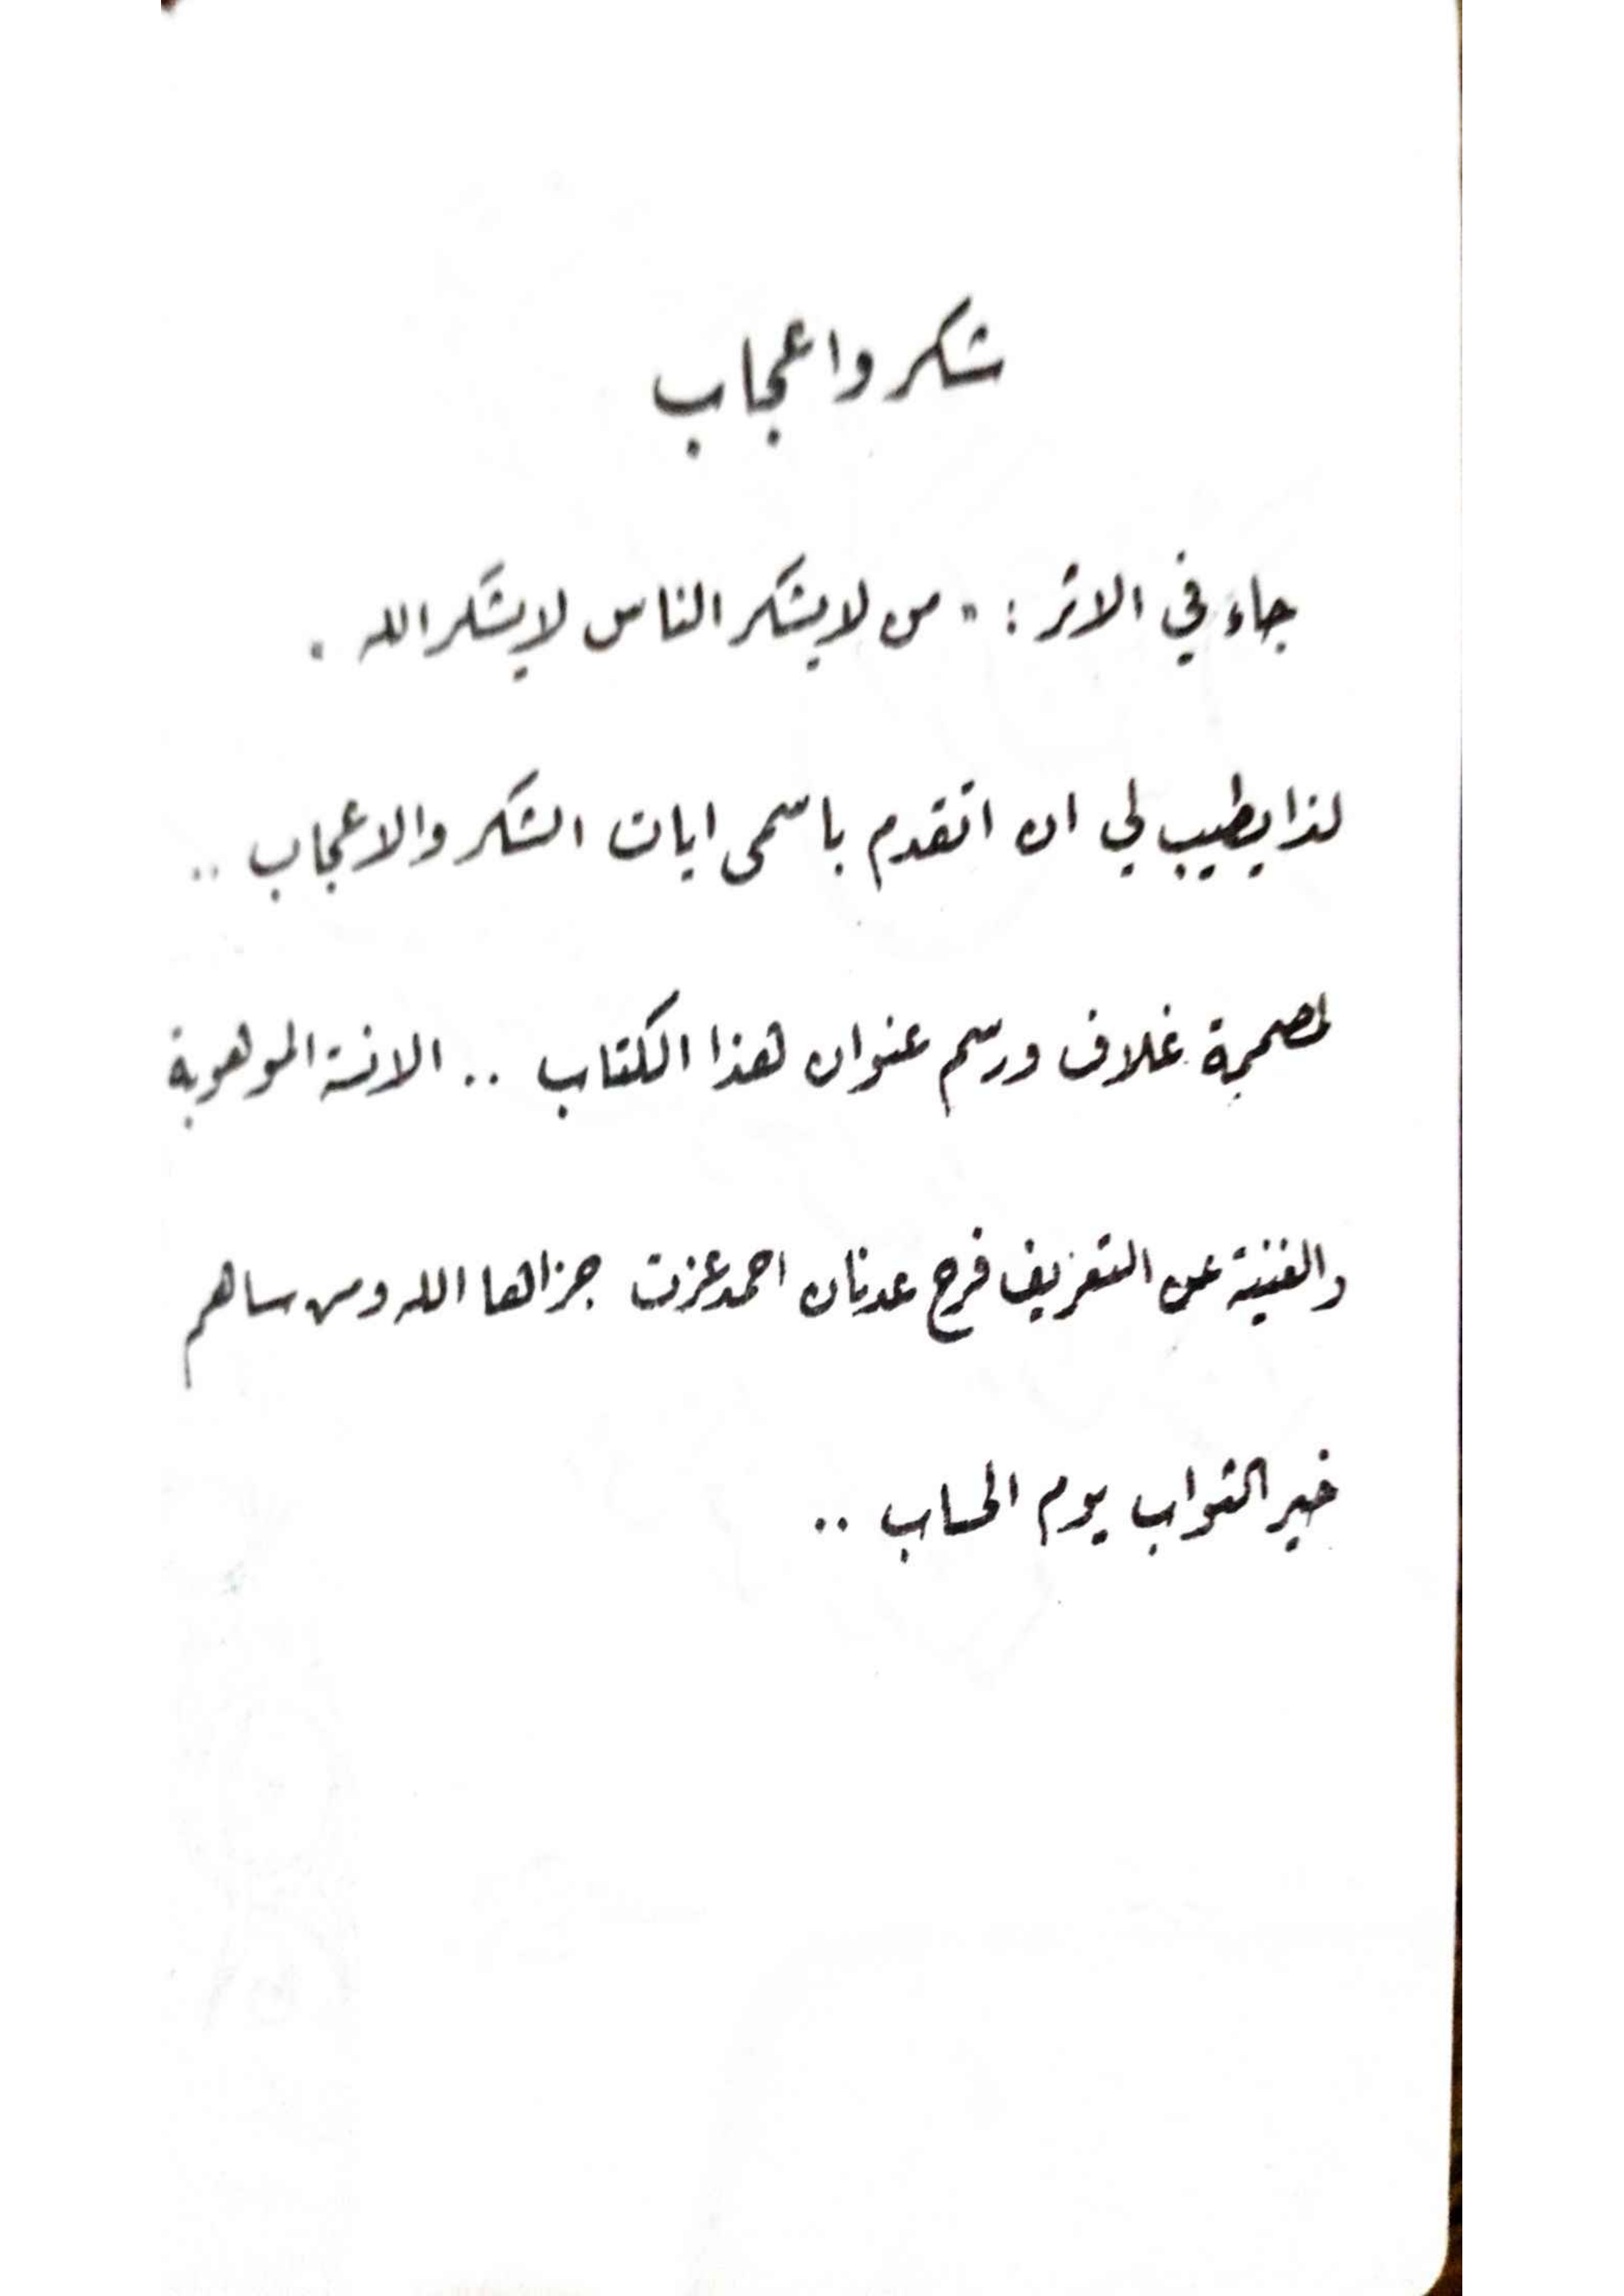 شكر واعجاب
جاء في الاثر : " من لا يشكر الناس لا يشكر الله .
لذا يطيب لي ان اتقدم باسمى ايات الشكر والاعجاب ..
لمصممة غلاف ورسم عنوان هذا الكتاب .. الانسة الموهوبة
والغنية عن التعريف فرح عدنان احمد عزت جزاها الله ومن ساهم
خير الثواب يوم الحساب ..